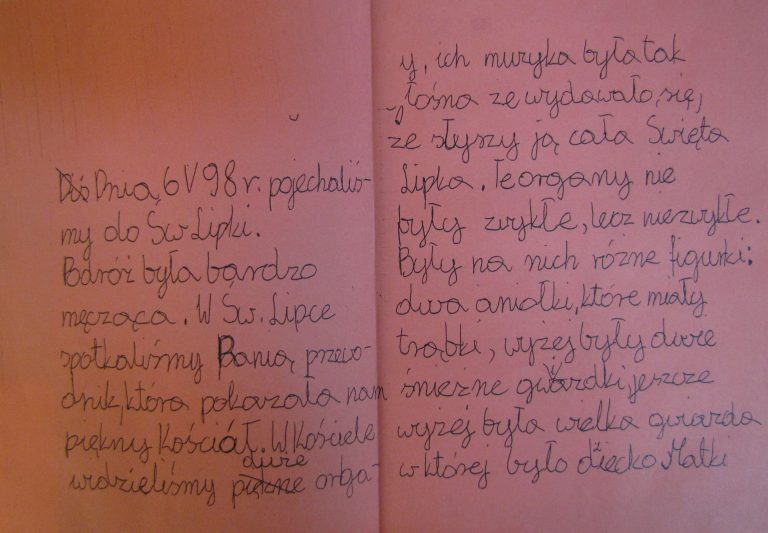 Dnia, 6 V 98 r. pojechaliś-
my do Św Lipki.
Podróż była bardzo
męcząca. W Św. Lipce
spotkaliśmy Panią przewo-
dnik, która pokazała nam
piękny Kościół. W Kościele
widzieliśmy duże orga-
y, ich muzyka była tak
głośna ze wydawało, się,
że słyszy ją cała Święta
Lipka. Te organy nie
były zwykłe, lecz niezwykłe.
Były na nich różne figurki:
dwa aniołki, które miały
trąbki, wyżej były dwie
śnieżne gwiazdki, jeszcze
wyżej była wielka gwiazda
w której było dziecko Matki